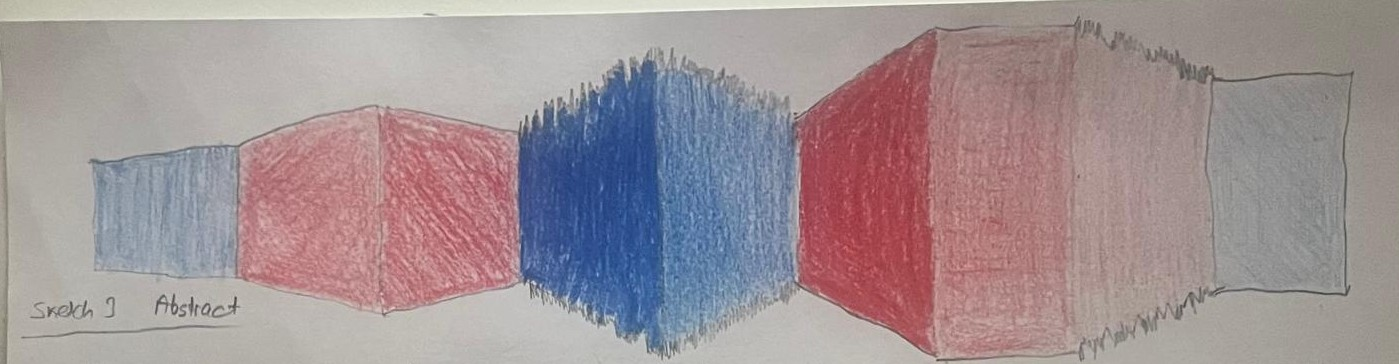 Sketch 3 Abstract